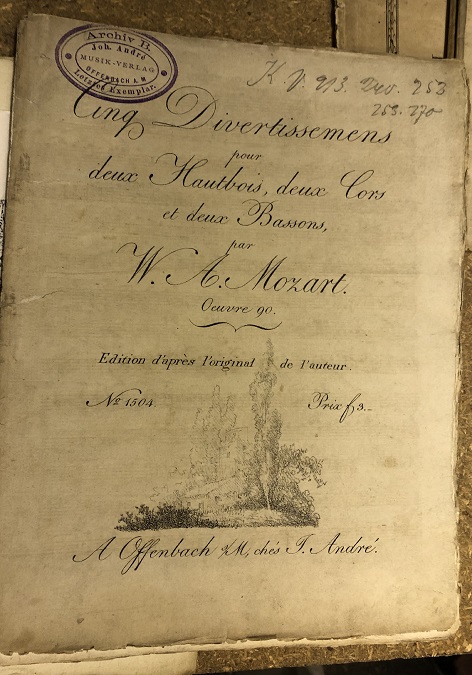 Archiv B.
Joh. André
MUSIK-VERLAG
OFFENBACH A. M.
Letztes Exemplar.
K. V. 213. 253
253. 270
Cinq Divertissemens
pour
deux Hautbois, deux Cors
et deux Bassons,
par
W. A. Mozart.
Oeuvre 90.
Edition d'après l'original de l'auteur.
No 1504.
Prix f 3.-
A Offenbach s/M, chés J. André.